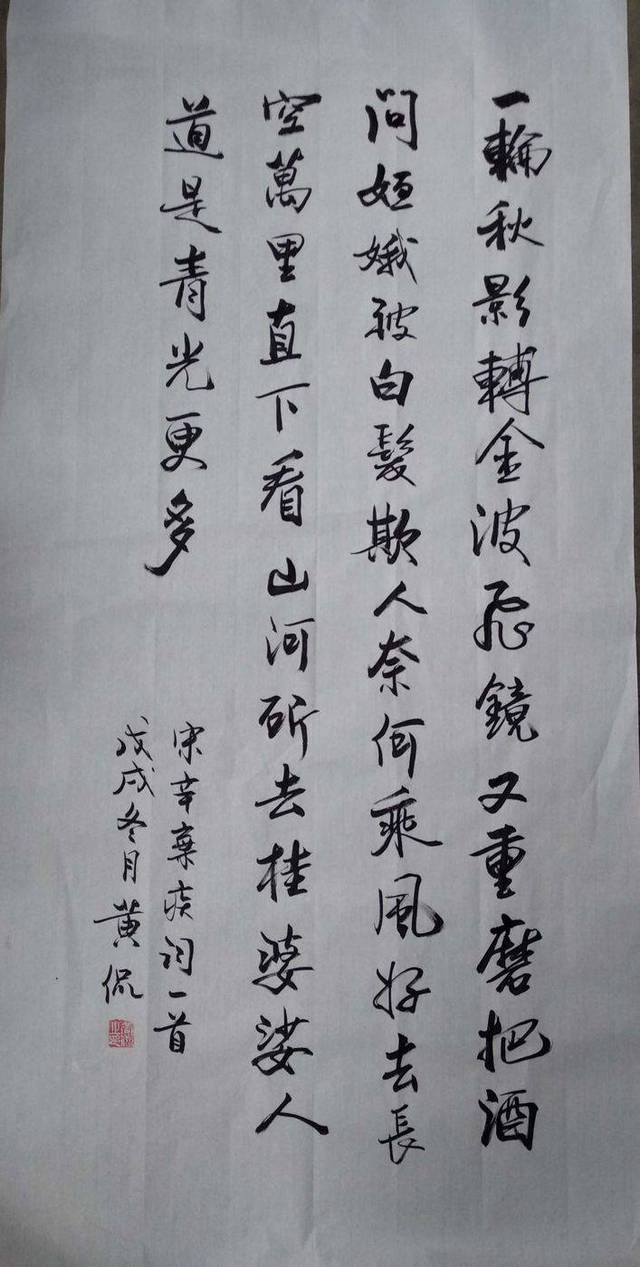 一輪秋影轉金波飛鏡又重磨把酒
問姮娥被白髮欺人奈何乘風好去長
空萬里直下看山河斫去桂婆娑人
道是青光更多
宋辛棄疾詞一首
戊戌冬月黄侃